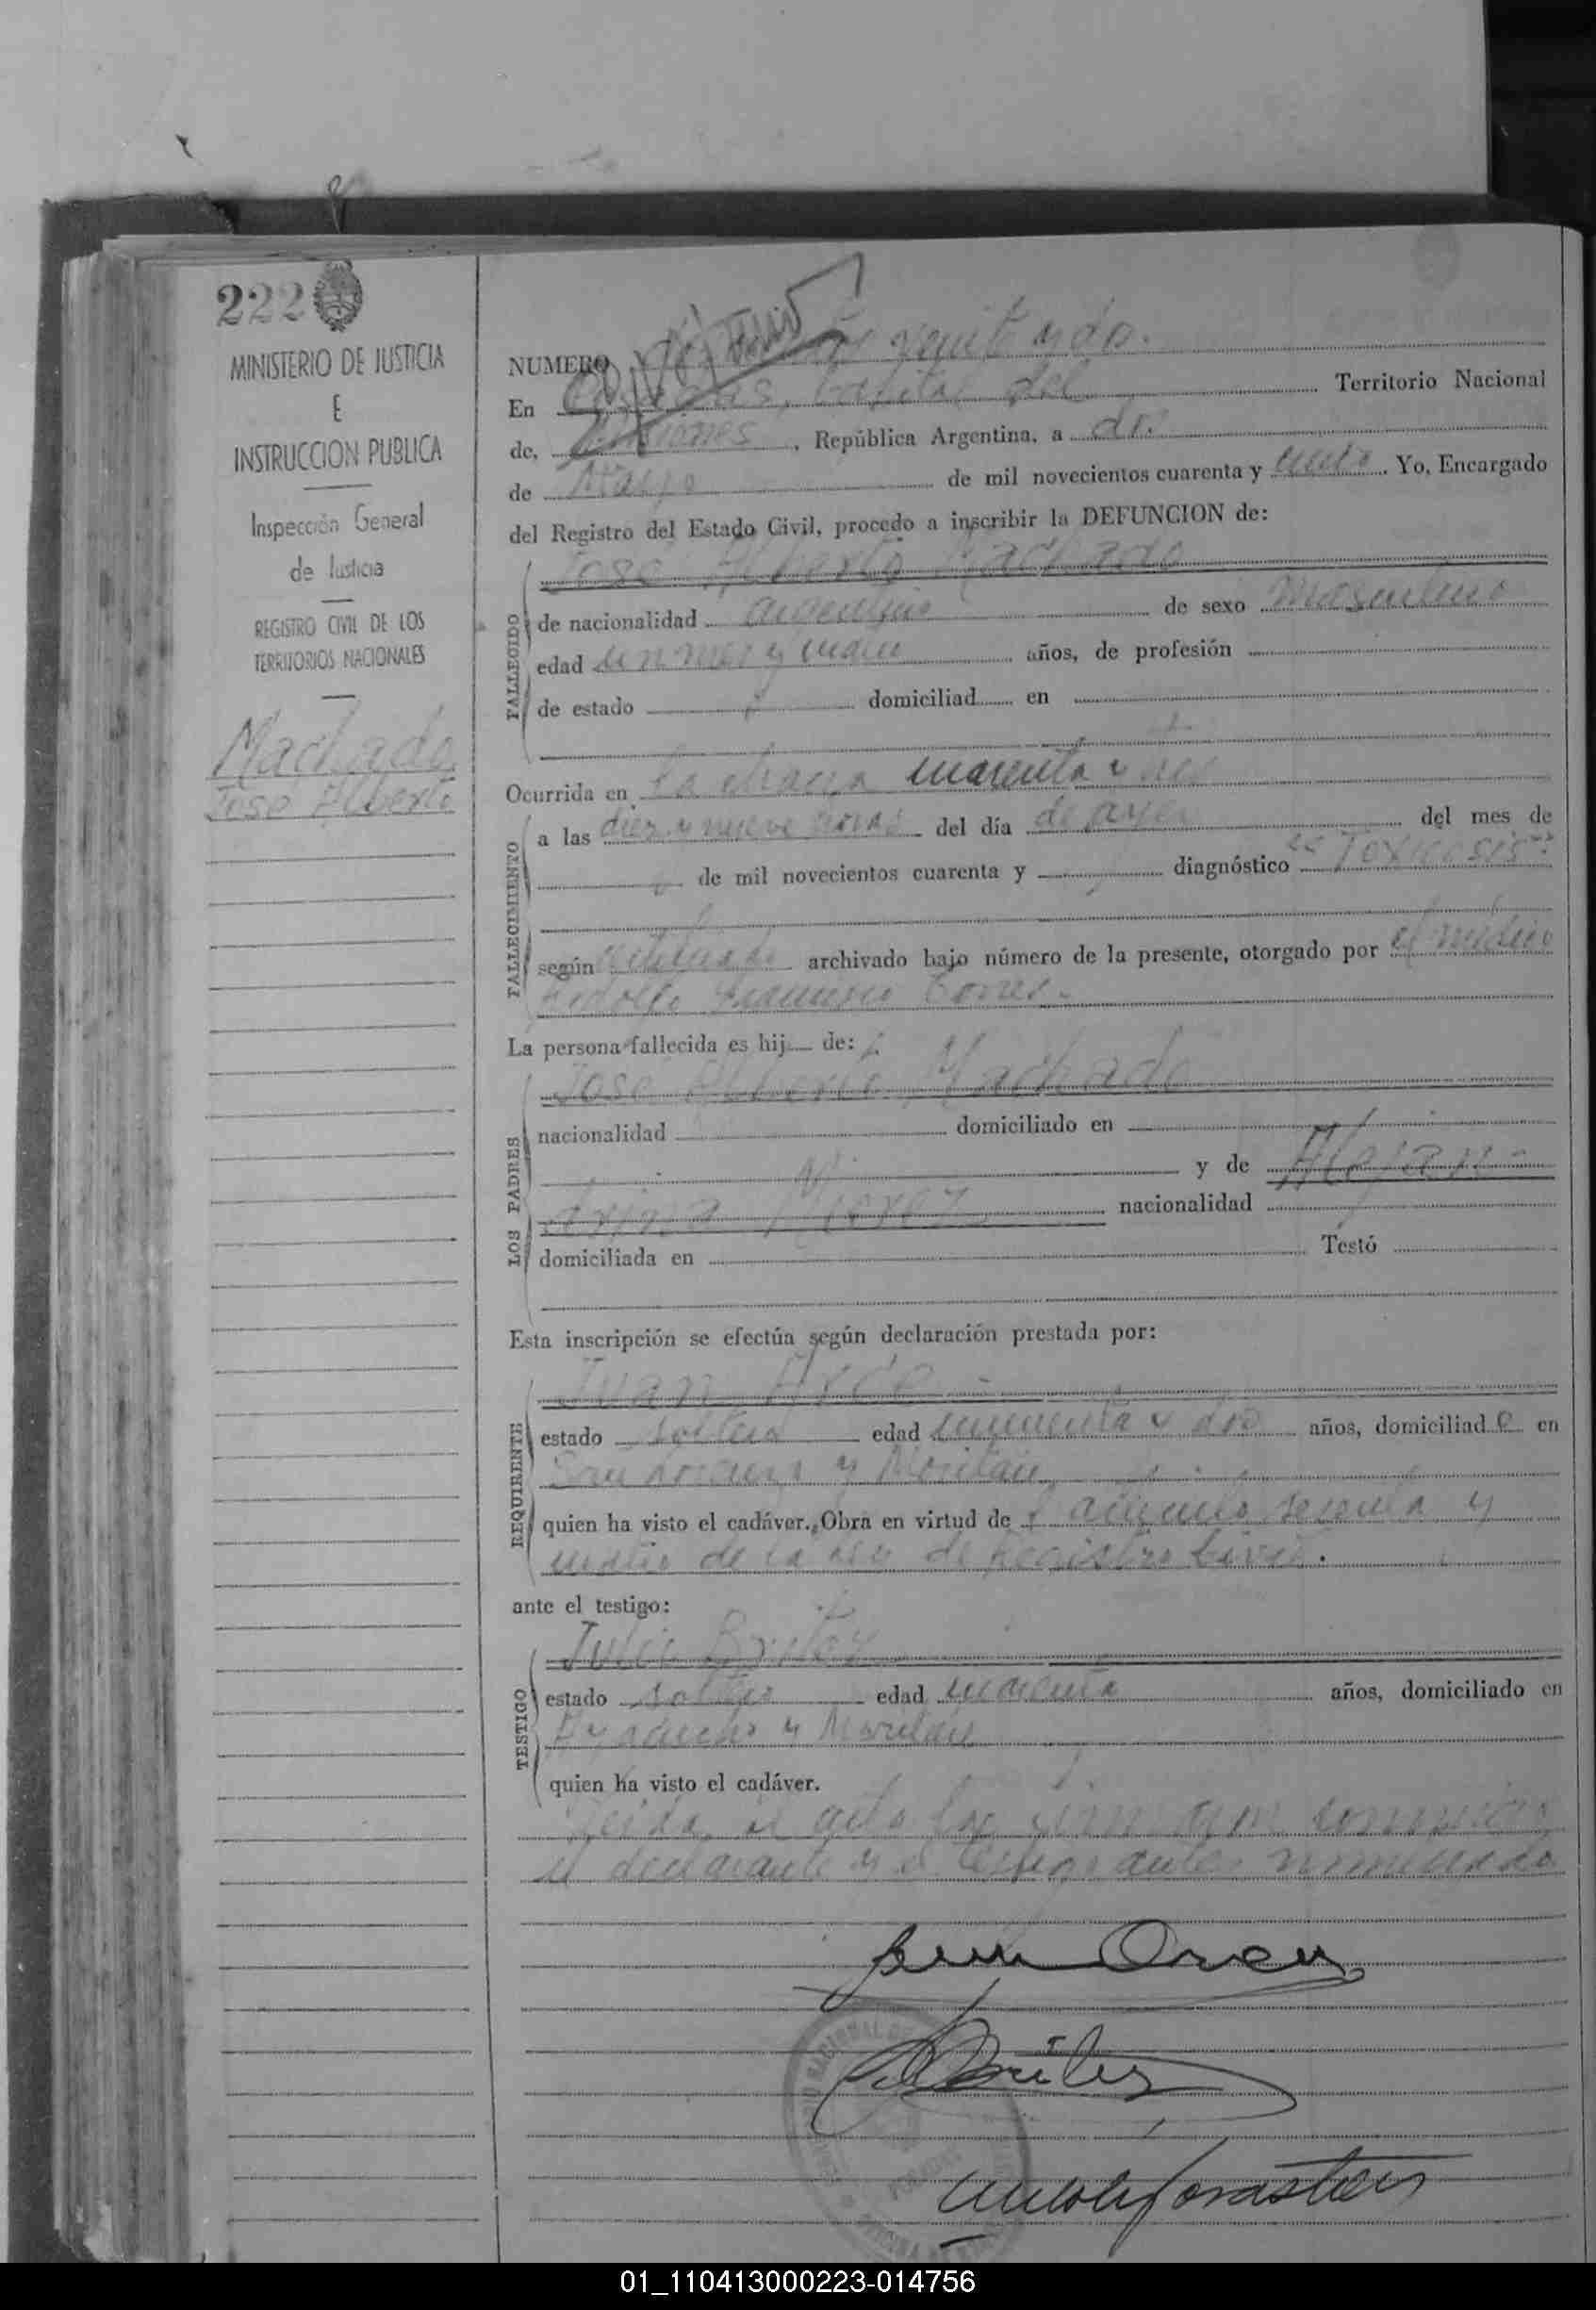 222
MINISTERIO DE JUSTICIA
E
INSTRUCCION PUBLICA
Inspección General
de Justicia
REGISTRO CIVIL DE LOS
TERRITORIOS NACIONALES
Machado
José Alberto
NUMERO
En Posadas, Capital del Territorio Nacional
de, Misiones, República Argentina, a dos
de Marzo de mil novecientos cuarenta y uno. Yo, Encargado
del Registro del Estado Civil, procedo a inscribir la DEFUNCION de:
FALLECIDO
José Alberto Machado
de nacionalidad argentino de sexo Masculino
edad un mes y años, de profesión
de estado domiciliad en
Ocurrida en La chacra cuarenta y
FALLECIMIENTO
a las diez y nueve horas del día de ayer del mes de
de mil novecientos cuarenta y diagnóstico "Toxicosis"
según certificado archivado bajo número de la presente, otorgado por el médico
Francisco Torres.
La persona fallecida es hij de:
LOS PADRES
José Alberto Machado
nacionalidad domiciliado en
y de Alejan-
drina nacionalidad
domiciliada en Testó
Esta inscripción se efectúa según declaración prestada por:
REQUIRENTE
Juan Arce
estado soltero edad cincuenta y dos años, domiciliad o en
San Lorenzo y
quien ha visto el cadáver. Obra en virtud de artículo sesenta y
cuatro de la ley de Registro Civil.
ante el testigo:
TESTIGO
Julio Britez
estado soltero edad cuarenta años, domiciliado en
Ayacucho y
quien ha visto el cadáver.
Leida el acta la firmaron conmigo
el declarante y el testigo antes nominado
Juan Arce
Britez
01_110413000223-014756